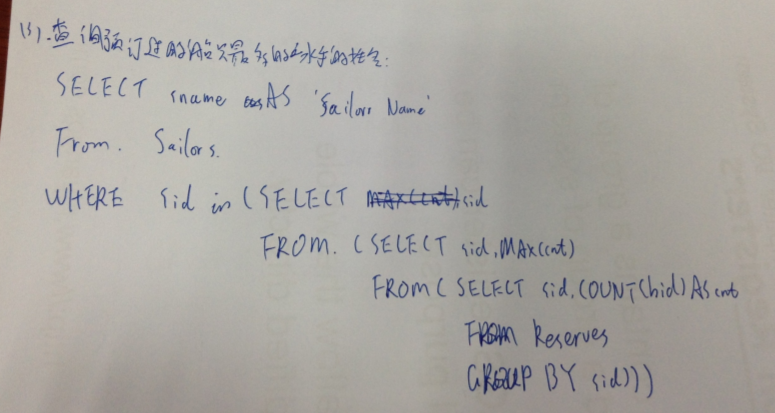 (3).查询预订过的船只最多的水手的姓名:
SELECT sname AS 'Sailors Name'
From. Sailors.
WHERE sid in (SELECT MAX(cnt), sid
FROM. (SELECT sid, MAX(cnt)
FROM ( SELECT sid, COUNT(bid) AS cnt
FROM Reserves
GROUP BY sid)))